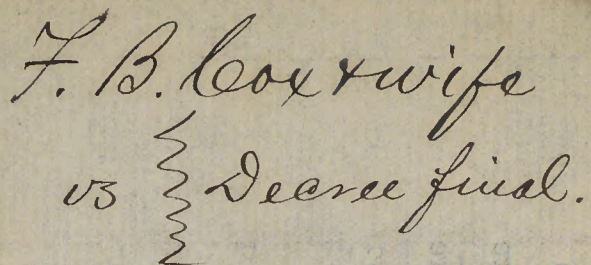 F. B. Cox & wife
vs Decree final.